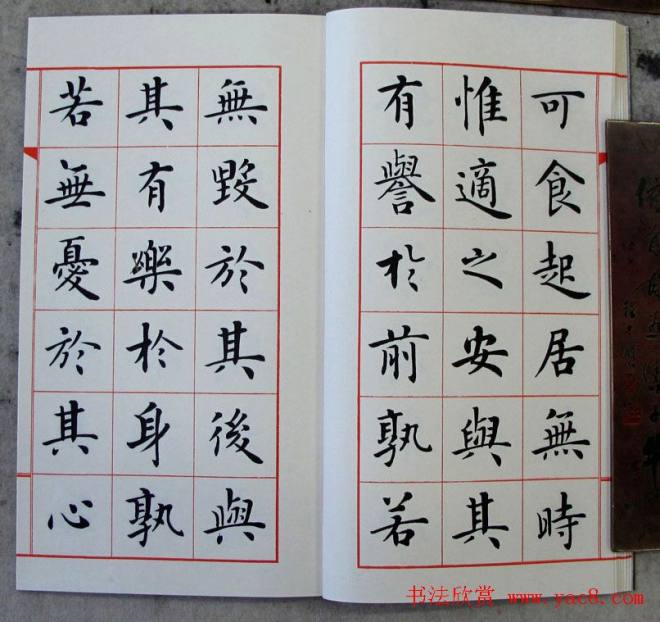 可食起居無時
惟適之安與其
有譽於前孰若
無毀於其後與
其有樂於身孰
若無憂於其心
书法欣赏 www.yac8.com